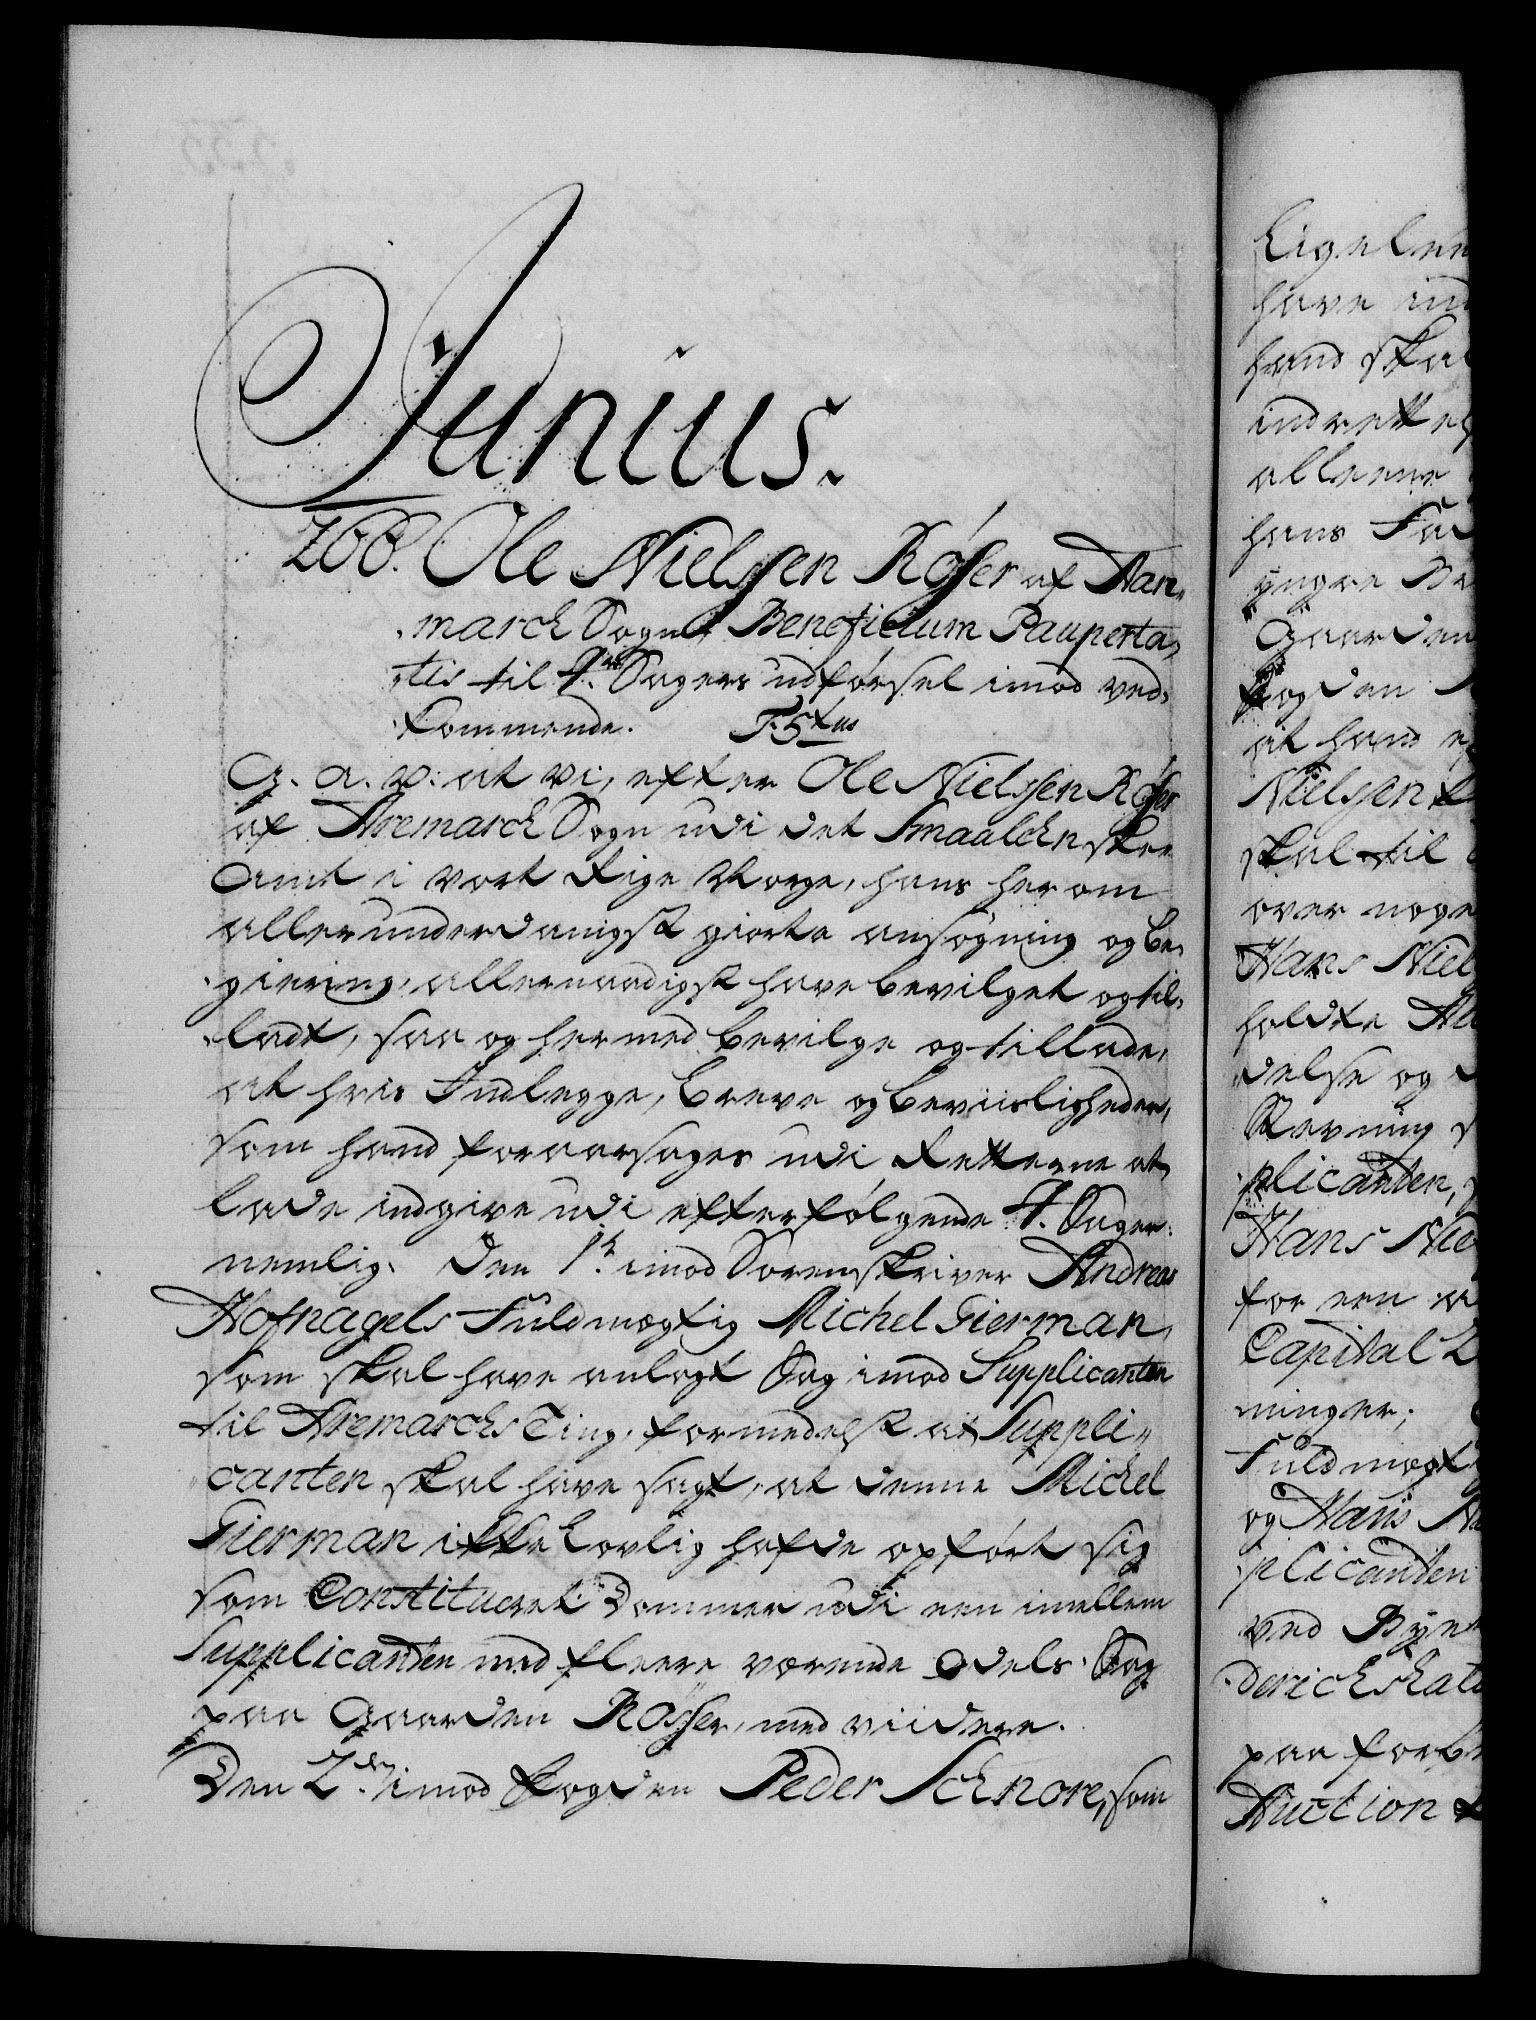 Junius.
268. Ole Nielssen Røser af Aare,,
marck Sogn, Beneficium Pauperta,,
tis til 4re Sagers udførsel imod ved,,
kommende. T. 5tus
G. a. v: at vi, efter Ole Nielssen Røser
af Aremarck Sogn udi det Smaalehnske
Amt i vort Rige Norge, hans herom
allerunderdanigst giorte ansøgning og be,,
giering, allernaadigst have bevilget og til,,
ladt, saa og hermed bevilge og tillade,
at hvis Indlegge, breve og beviisligheder,
som hand foraarsages udi Retterne at
lade indgive udi efterfølgende 4. Sager.
nemlig. Den 1te imod Sorenskriver Andreas
Hofnagels Fuldmægtig Michel Gierman,
som skal have anlagt Sag imod Supplicanten
til Aremarchs Ting, formedelst at Suppli,,
canten skal have sagt, at denne Michel
Gierman ikke Lovlig hafde opført sig
som Constitueret Dommer udi een imellem
Supplicanten med fleere værende Odels-Sag
paa Gaarden Røsser, med viidere.
Den 2den imod fogden Peder Schnore, som
Ligeled
have ind
hand skal
indrette
alleene
hans Fad
yngre Br
Gaarden
fogden
at hand
Nielssen
skal til
over noge
Hans Niel
holdte
delse og
Revning
plicanten,
Hans Nie
for een
Capital
ninger;
Fuldmægt
og Hans
plicanten
ved Bye
derichshald
paa forb
Auction